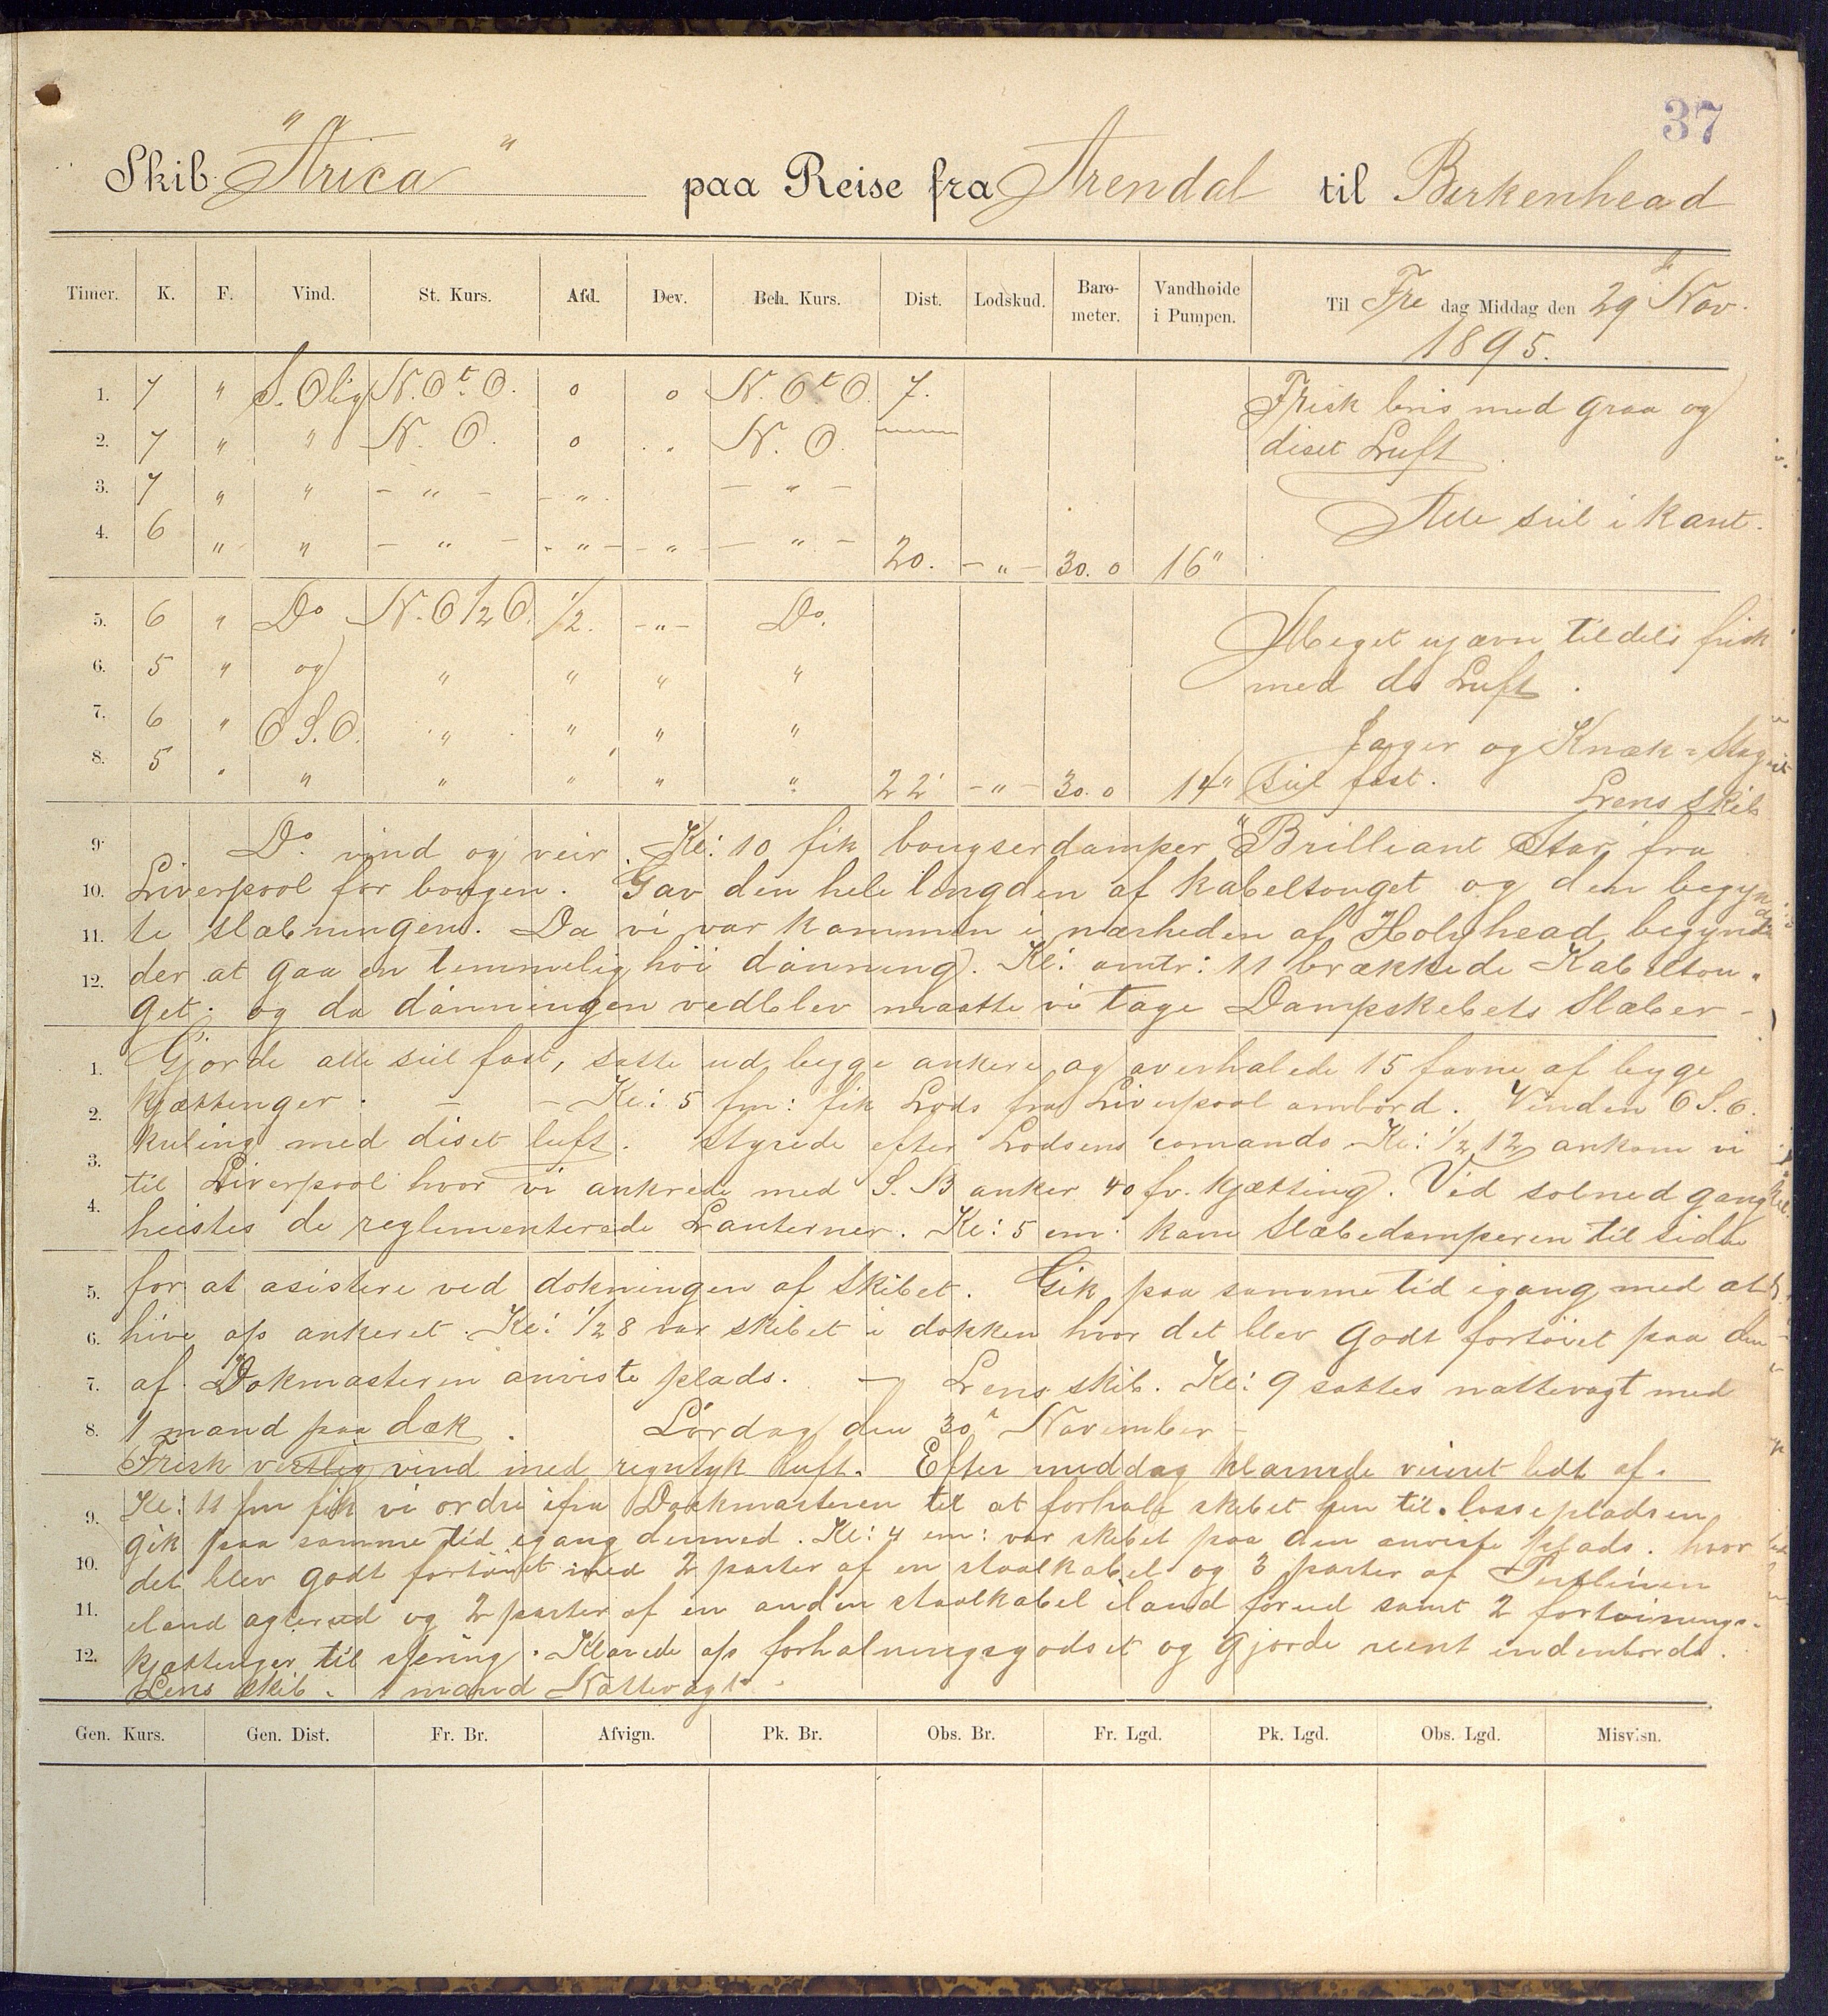 37
Skib "Arica" paa Reise fra Arendal til Birkenhead
Timer. K. F. Vind. St. Kurs. Afd. Dev. Beh. Kurs. Dist. Lodskud. Baro-meter. Vandhøide i Pumpen. Til Fre dag Middag den 29 Nov. 1895.
1. 7 " S. Olig N. O t. O. 0 0 N. O t. O. 7. Frisk bris med graa og
2. 7 " " N. O. 0 " N. O. diset Luft.
3. 7 " " - " - - " - " -
Alle seil i kant.
4. 6 " " - " - - " - - " - - " - 20. - " - 30.0 16"
5. 6 " Do N. O 1/2 O. 1/2. - " - Do.
Meget ujævn tildels frisk
6. 5 " og " " " "
med do Luft.
7. 6 " O S. O. " " " "
Jager og Knæk = Stag
8. 5 " " " " " " 22' - " - 30.0 14" seil fast.
Lens skib
9. Do. vind og veir. Kl: 10 fik bougserdamper "Brilliant Star fra
10. Liverpool for bougen. Gav den hele længden af kabeltouget og den begyn
11. te slæbningen. Da vi var kommen i nærheden af Holyhead begyndte
12. der at gaa en temmelig höi dönning. Kl: omtr: 11 brækkede Kabeltou-
get; og da dönningen vedblev maatte vi tage Dampskibets Slæber -
1. Gjorde alle seil fast, satte ud begge ankere og overhalede 15 favne af begge
2. Kjættinger. - - Kl: 5 fm: fik Lods fra Liverpool ombord. Vinden O S. O.
3. kuling med diset luft. Styrede efter Lodsens comando Kl: 1/2 12 ankom vi
4. til Liverpool hvor vi ankrede med S. B anker 40 fv. kjætting. Ved solnedgang
heistes de reglementerede Lanterner. Kl: 5 em: kom Slæbedamperen til siden
5. for at asistere ved dokningen af skibet. Gik paa samme tid igang med at
6. hive op ankeret. Kl: 1/2 8 var skibet i dokken hvor det blev godt fortöiet paa den
7. af Dokmasteren anviste plads. - Lens skib. Kl: 9 sattes nattevagt med
8. 1 mand paa dæk. Lördag den 30 November -
Frisk vestlig vind med regntyk luft. Efter middag klarnede veiret lidt af.
9. Kl: 11 fm fik vi ordre ifra Dockmasteren til at forhale skibet hen til lossepladsen
gik paa samme tid igang dermed. Kl: 4 em: var skibet paa den anviste plads. hvor
10. det blev godt fortöiet med 2 parter af en staalkabel og 3 parter af
11. iland agterud og 2 parter af en anden staalkabel iland forud samt 2 fortöinings-
12. kjættinger til spring. Klarede op forhalningsgodset og gjorde reent indenbords.
Lens skib. 1 mand Nattevagt.
Gen. Kurs. Gen. Dist. Fr. Br. Afvign. Pk. Br. Obs. Br. Fr. Lgd. Pk. Lgd. Obs. Lgd. Misvisn.